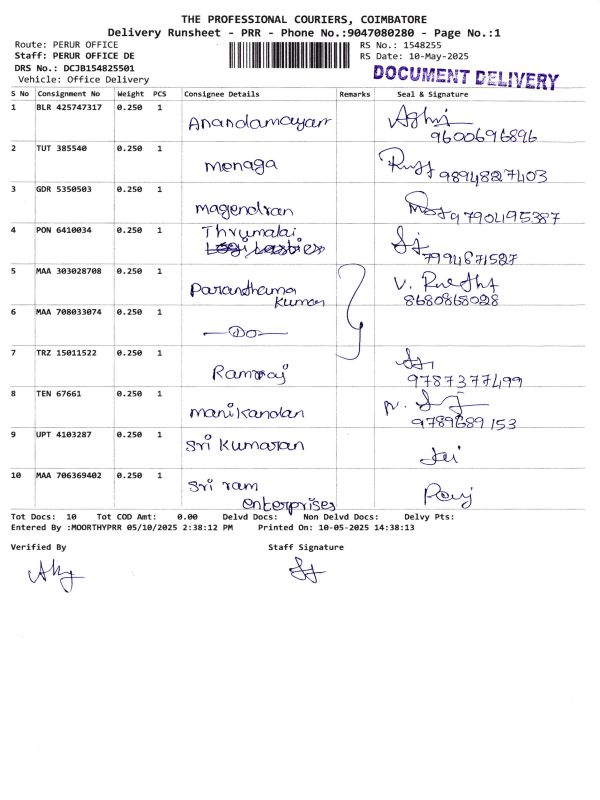 THE PROFESSIONAL COURIERS, COIMBATORE
Delivery Runsheet - PRR - Phone No.:9047080280 - Page No.:1
Route: PERUR OFFICE RS No.: 1548255
Staff: PERUR OFFICE DE RS Date: 10-May-2025
DRS No.: DCJB154825501 DOCUMENT DELIVERY
Vehicle: Office Delivery
S No Consignment No Weight PCS Consignee Details Remarks Seal & Signature
1 BLR 425747317 0.250 1 Anandamayan
9600696896
2 TUT 385540 0.250 1 monaga 9894827403
3 GDR 5350503 0.250 1 magendran 9790495387
4 PON 6410034 0.250 1 Thrumalai
7994671587
5 MAA 303028708 0.250 1 Parandhama V.
Kumar 8680868028
6 MAA 708033074 0.250 1 Do
7 TRZ 15011522 0.250 1 Ramraj 9787377499
8 TEN 67661 0.250 1 manikandan
9789689 153
9 UPT 4103287 0.250 1 Sri Kumaran
10 MAA 706369402 0.250 1 Sri ram
enterprises
Tot Docs: 10 Tot COD Amt: 0.00 Delvd Docs: Non Delvd Docs: Delvy Pts:
Entered By :MOORTHYPRR 05/10/2025 2:38:12 PM Printed On: 10-05-2025 14:38:13
Verified By Staff Signature